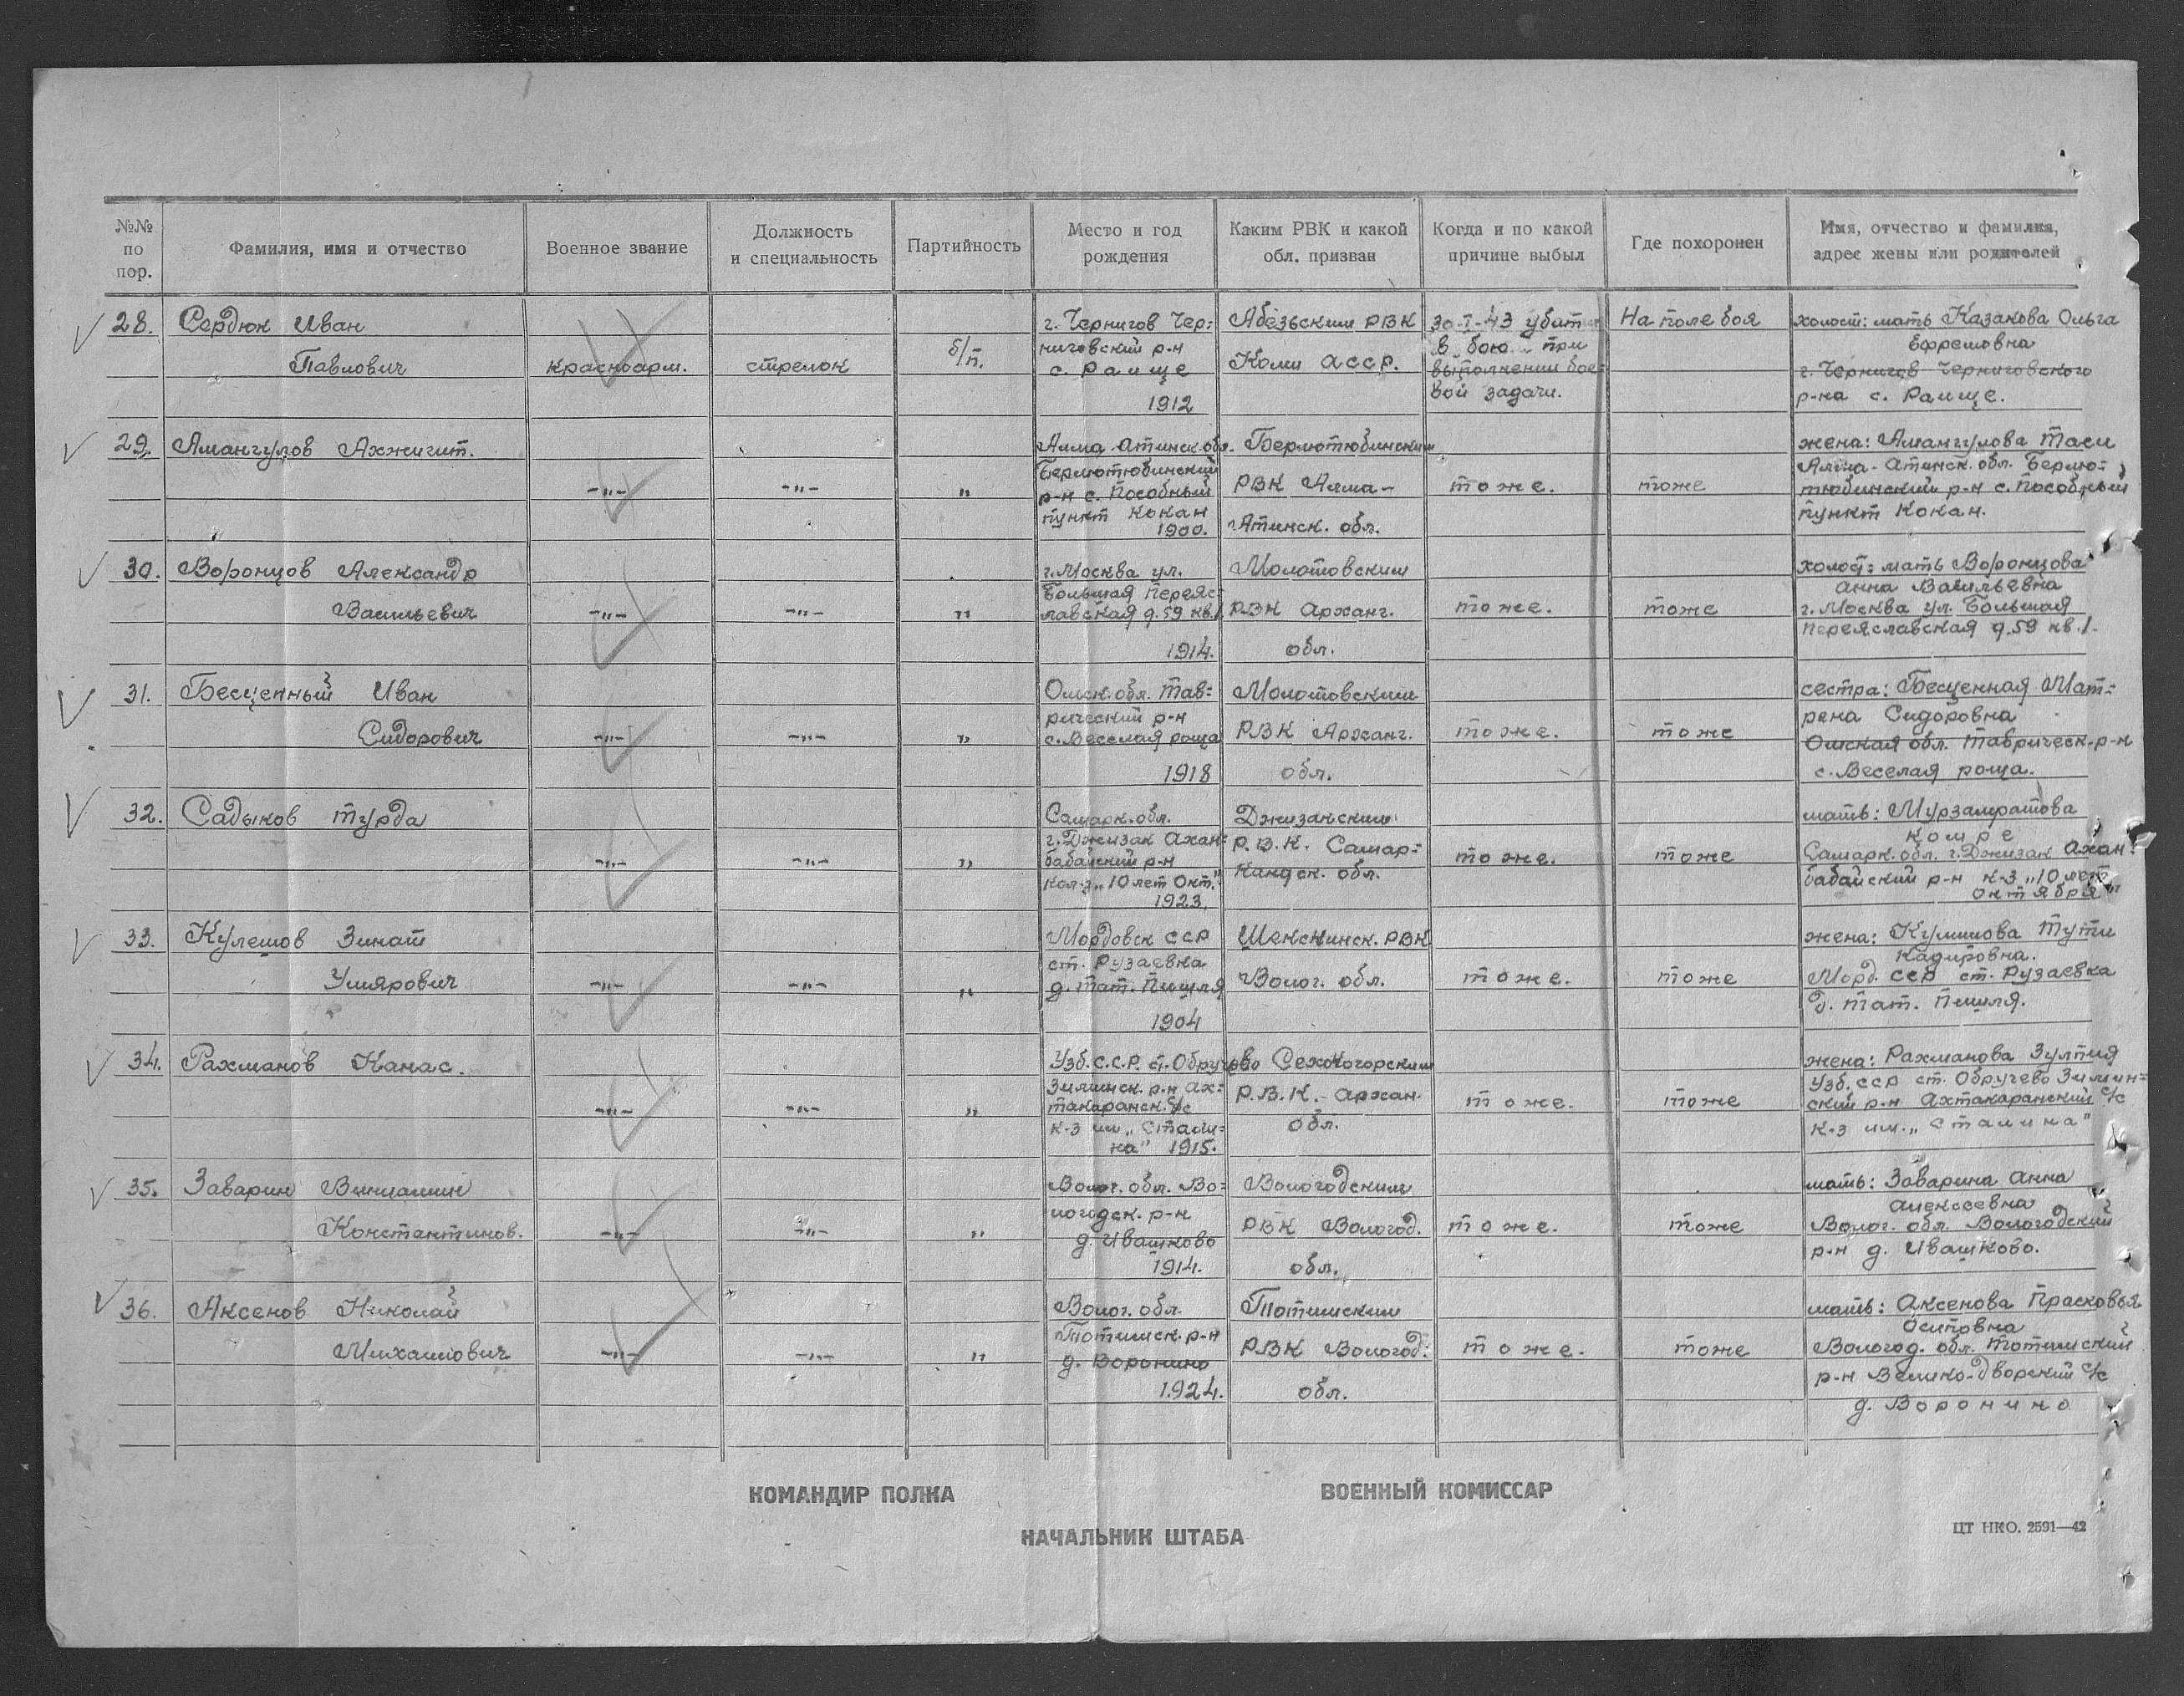 №№ по пор.
Фамилия, имя и отчество
Военное звание
Должность и специальность
Партийность
Место и год рождения
Каким РВК и какой обл. призван
Когда и по какой причине выбыл
Где похоронен
Имя, отчество и фамилия, адрес жены или родителей
28.
Сердюк Иван
Павлович
красноарм.
стрелок
б/п.
г. Чернигов Чер-
ниговский р-н
с. Раище
1912
Абезьским РВК
Коми АССР.
30-I-43 убит
в бою при
выполнении бое-
вой задачи.
На поле боя
холост: мать Казакова Ольга
Ефремовна
г. Чернигов Черниговского
р-на с. Раище.
29.
Амангулов Ахжигит.
-„-
-„-
„
Алма-Атинск. обл.
Берлютюбинский
р-н с. Пособный
пункт Кокан
1900.
Берлютюбинским
РВК Алма-
Атинск. обл.
тоже.
тоже
жена: Амангулова Таси
Алма-Атинск. обл. Берлю-
тюбинский р-н с. Пособный
пункт Кокан.
30.
Воронцов Александр
Васильевич
-„-
-„-
„
г. Москва ул.
Большая Переяс-
лавская д. 59 кв. 1
1914.
Молотовским
РВК Арханг.
обл.
тоже.
тоже
холост: мать Воронцова
Анна Васильевна
г. Москва ул. Большая
Переяславская д. 59 кв. 1.
31.
Бесценный Иван
Сидорович
-„-
-„-
„
Омск. обл. Тав-
рический р-н
с. Веселая роща
1918
Молотовским
РВК Арханг.
обл.
тоже.
тоже
сестра: Бесценная Мат-
рена Сидоровна
Омская обл. Таврическ. р-н
с. Веселая роща.
32.
Садыков Турда
-„-
-„-
„
Самарк. обл.
г. Джизак Ахан-
бабайский р-н
кол-з „10 лет Окт."
1923.
Джизакским
Р.В.К. Самар-
кандск. обл.
тоже.
тоже
мать: Мурзамратова
Комре
Самарк. обл. г. Джизак Ахан-
бабайский р-н к-з „10 лет
октября"
33.
Кулешов Зинат
Умярович
-„-
-„-
„
Мордовск ССР
ст. Рузаевка
д. Тат. Пишля
1904
Шекснинск. РВК
Волог. обл.
тоже.
тоже
жена: Кулешова Тути
Кадировна.
Морд. ССР ст. Рузаевка
д. Тат. Пишля.
34.
Рахманов Канас.
-„-
-„-
„
Узб. С.С.Р. ст. Обручево
Зиминск. р-н Ах-
такаранск. с/с
к-з им. „Стали-
на" 1915.
Сехкогорским
Р.В.К. Архан.
обл.
тоже.
тоже
жена: Рахманова Зулпия
Узб. ССР ст. Обручево Зимин-
ский р-н Ахтакаранский с/с
к-з им. „Сталина"
35.
Заварин Вениамин
Константинов.
-„-
-„-
„
Волог. обл. Во-
логодск. р-н
д. Ивашково
1914.
Вологодским
РВК Вологод.
обл.
тоже.
тоже
мать: Заварина Анна
Алексеевна
Волог. обл. Вологодский
р-н д. Ивашково.
36.
Аксенов Николай
Михайлович
-„-
-„-
„
Волог. обл.
Тотемск. р-н
д. Воронино
1924.
Тотемским
РВК Вологод.
обл.
тоже.
тоже
мать: Аксенова Прасковья
Осиповна
Вологод. обл. Тотемский
р-н Велико-Дворский с/с
д. Воронино
КОМАНДИР ПОЛКА
ВОЕННЫЙ КОМИССАР
НАЧАЛЬНИК ШТАБА
ЦТ НКО. 2591—42